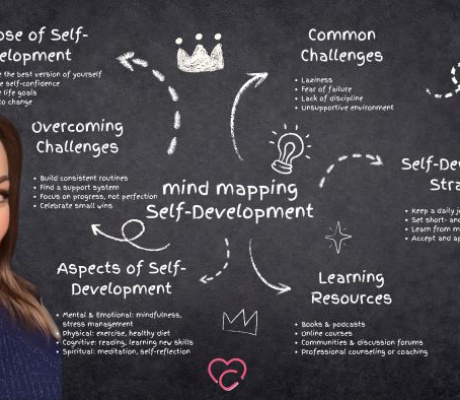 ose of Self-
elopment
e the best version of yourself
e self-confidence
e life goals
to change
Common
Challenges
• Laziness
• Fear of failure
• Lack of discipline
• Unsupportive environment
Overcoming
Challenges
• Build consistent routines
• Find a support system
• Focus on progress, not perfection
• Celebrate small wins
mind mapping
Self-Development
Self-De
Stra
• Keep a daily j
• Set short- and
• Learn from m
• Accept and ap
Aspects of Self-
Development
• Mental & Emotional: mindfulness,
stress management
• Physical: exercise, healthy diet
• Cognitive: reading, learning new skills
• Spiritual: meditation, self-reflection
Learning
Resources
• Books & podcasts
• Online courses
• Communities & discussion forums
• Professional counseling or coaching